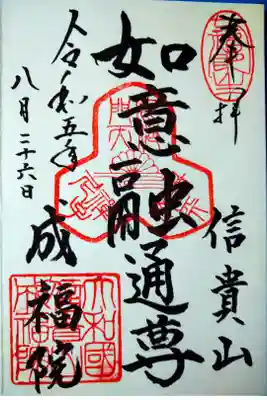 奉拝
信貴山
如意融通尊
成福院
令和五年
八月二十六日